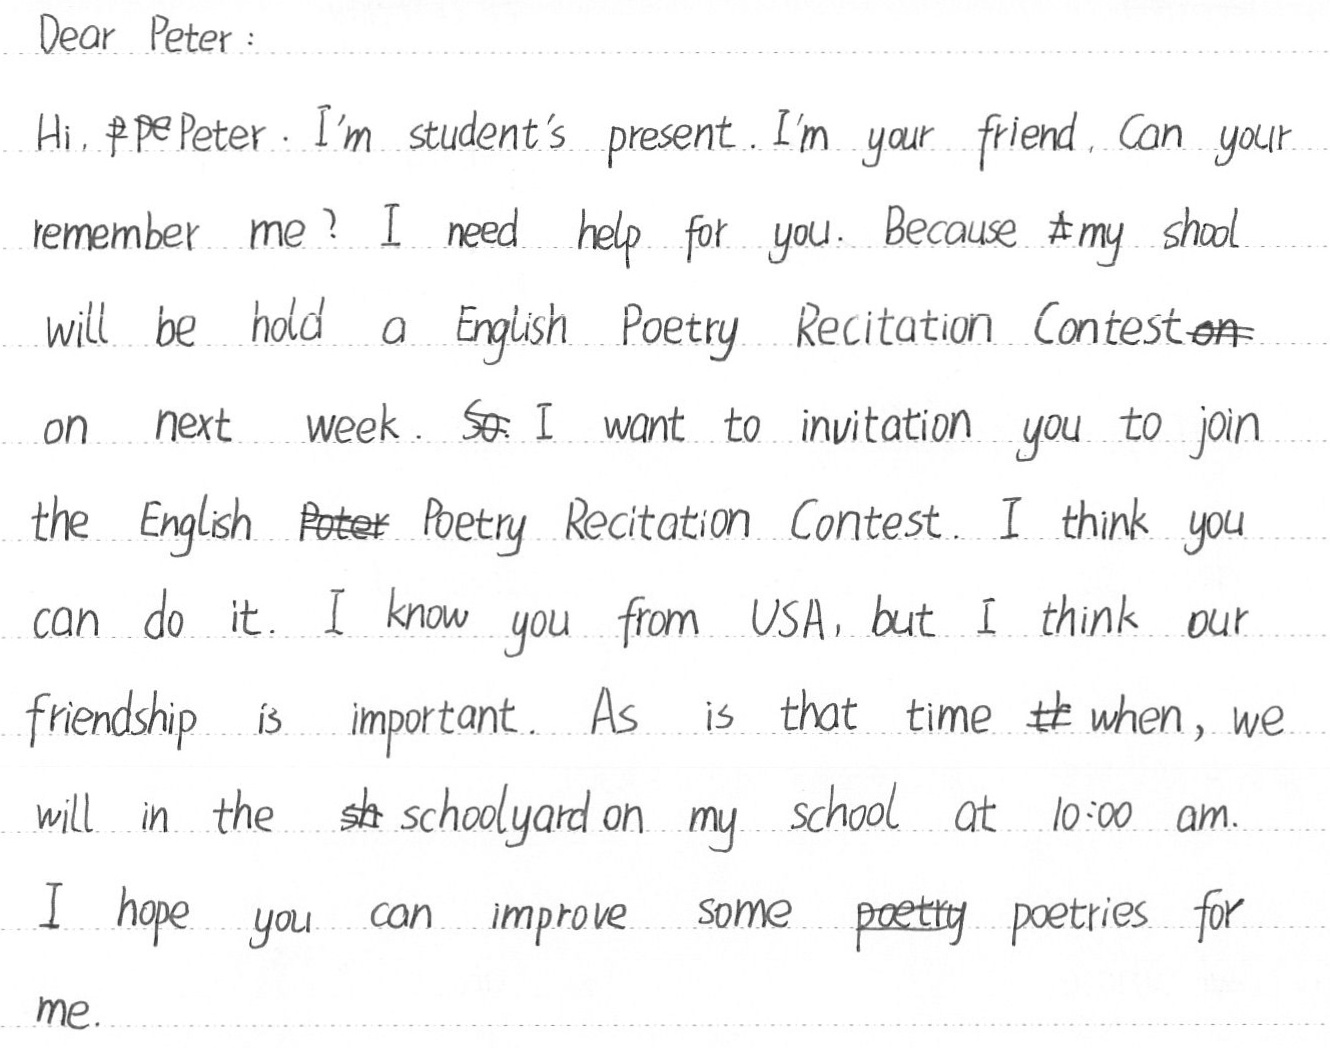 Dear Peter:
Hi, Peter. I'm student's present. I'm your friend. Can your
remember me? I need help for you. Because my shool
will be hold a English Poetry Recitation Contest
on next week. I want to invitation you to join
the English Poetry Recitation Contest. I think you
can do it. I know you from USA, but I think our
friendship is important. As is that time when, we
will in the schoolyard on my school at 10:00 am.
I hope you can improve some poetries for
me.